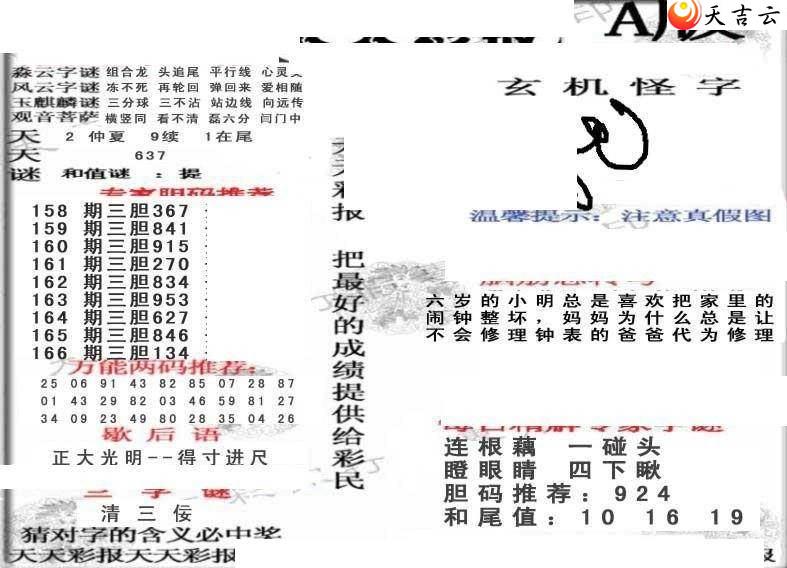 天吉云
森云字谜 组合龙 头追尾 平行线 心灵
风云字谜 冻不死 再轮回 弹回来 爱相随
玉麒麟谜 三分球 三不沾 站边线 向远传
观音菩萨 横竖同 看不清 磊六分 闫门中
天 2 仲夏 9续 1在尾
天 637
谜 和值谜 ：提
专家胆码推荐
158 期三胆367
159 期三胆841
160 期三胆915
161 期三胆270
162 期三胆834
163 期三胆953
164 期三胆627
165 期三胆846
166 期三胆134
万能两码推荐：
25 06 91 43 82 85 07 28 87
01 43 29 82 03 46 59 81 27
34 09 23 49 80 28 35 04 26
歇后语
正大光明--得寸进尺
三字谜
清三佞
猜对字的含义必中奖
天天彩报天天彩报
天天彩报 把最好的成绩提供给彩民
玄机怪字
温馨提示：注意真假图
六岁的小明总是喜欢把家里的
闹钟整坏，妈妈为什么总是让
不会修理钟表的爸爸代为修理
连根藕 一碰头
瞪眼睛 四下瞅
胆码推荐：924
和尾值：10 16 19